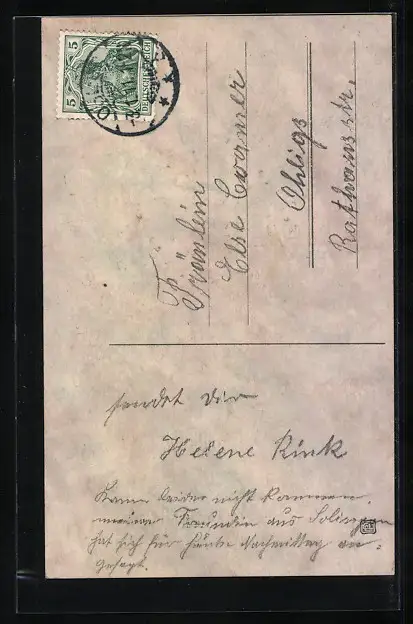 5 5
DEUTSCHES REICH
Fräulein
Else Cramer
Ohligs
Rathausstr.
sendet Dir
Helene Rink
Kann leider nicht kommen,
meine Freundin aus Solingen
hat sich für heute Nachmittag an-
gesagt.